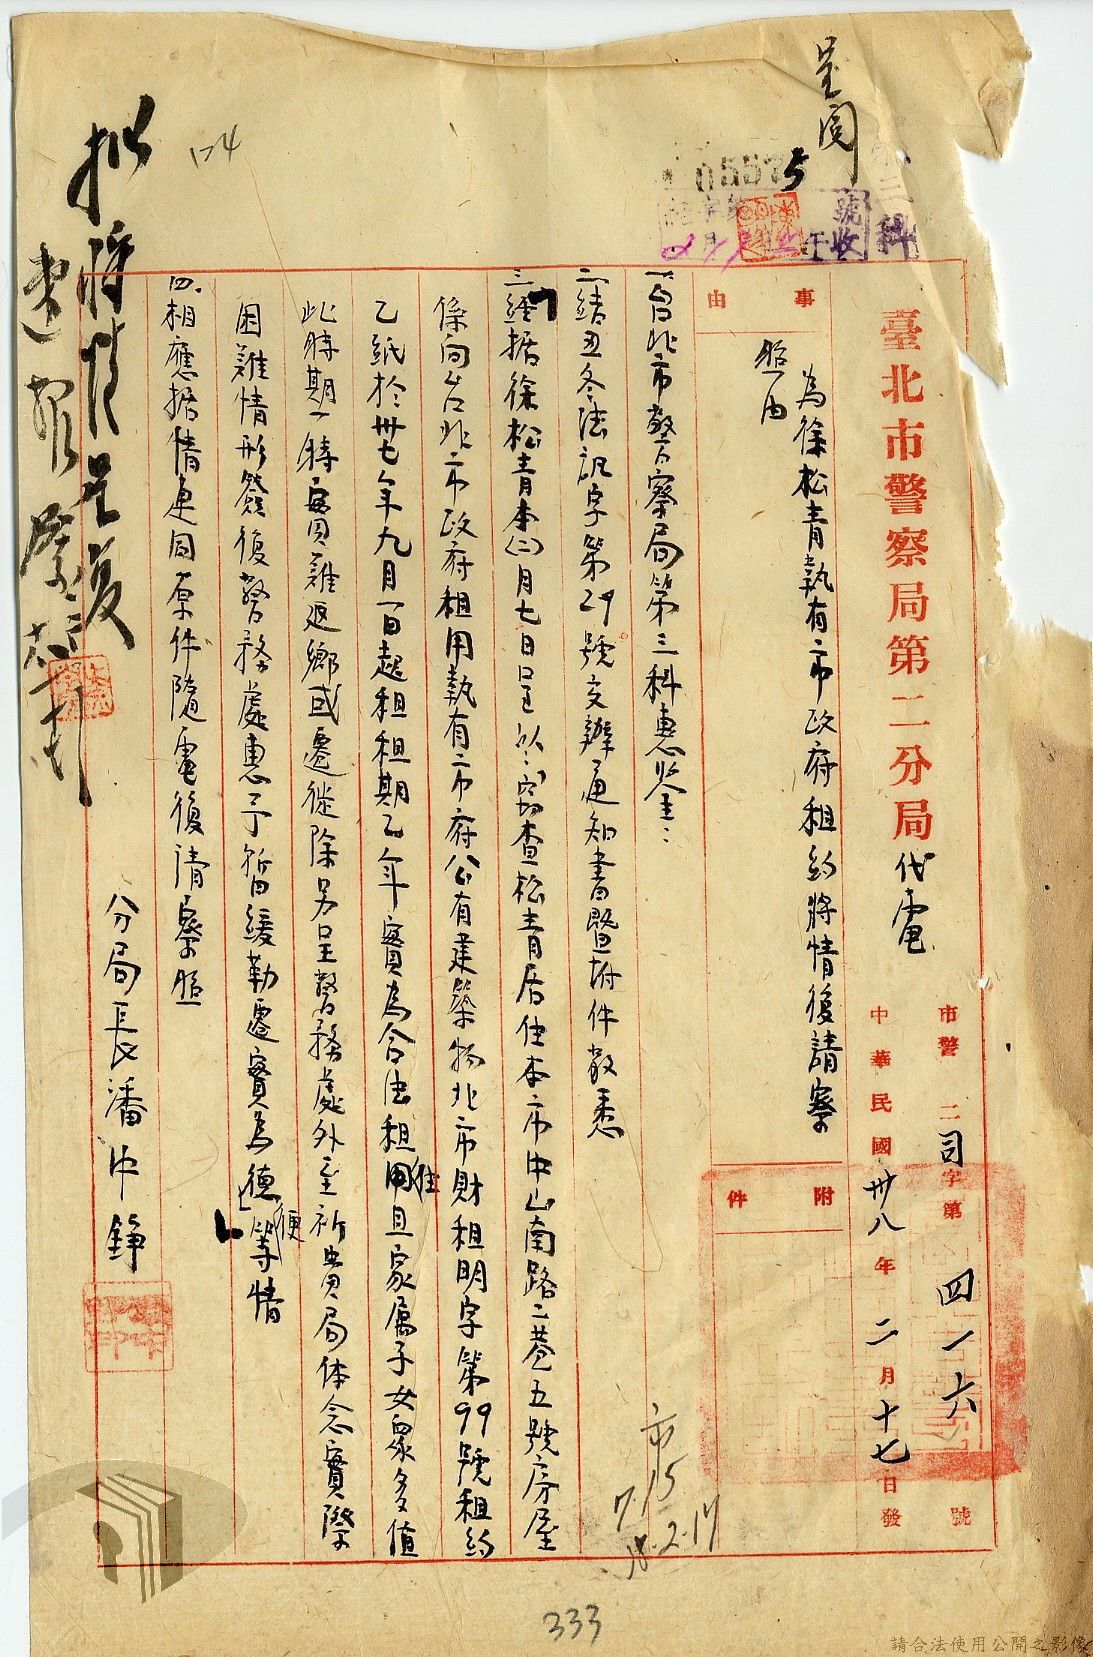 呈閱
第三科
05575
號收
臺北市警察局第二分局代電
市警二司字第四一六號
中華民國卅八年二月十七日發
事由
為徐松青執有市政府租約將情復請察
照由
附件
一、台北市警察局第三科惠鑒：
二、結丑冬法訊字第29號交辦通知書暨附件敬悉
三、經据徐松青本(二)月七日呈以：「竊查松青居住本市中山南路二巷五號房屋
係向台北市政府租用執有市府公有建築物北市財租明字第99號租約
乙紙於卅七年九月一日起租租期乙年實為合法租住且家屬子女眾多值
此時期一時實難返鄉或遷徙除另呈警務處外並祈貴局体念實際
困難情形簽復警務處惠予暫緩勒遷實為德便」等情
四、相應据情連同原件隨電復請察照
分局長潘中錚
擬將情呈復
124
市
7.15
38.2.17
333
請合法使用公開之影像